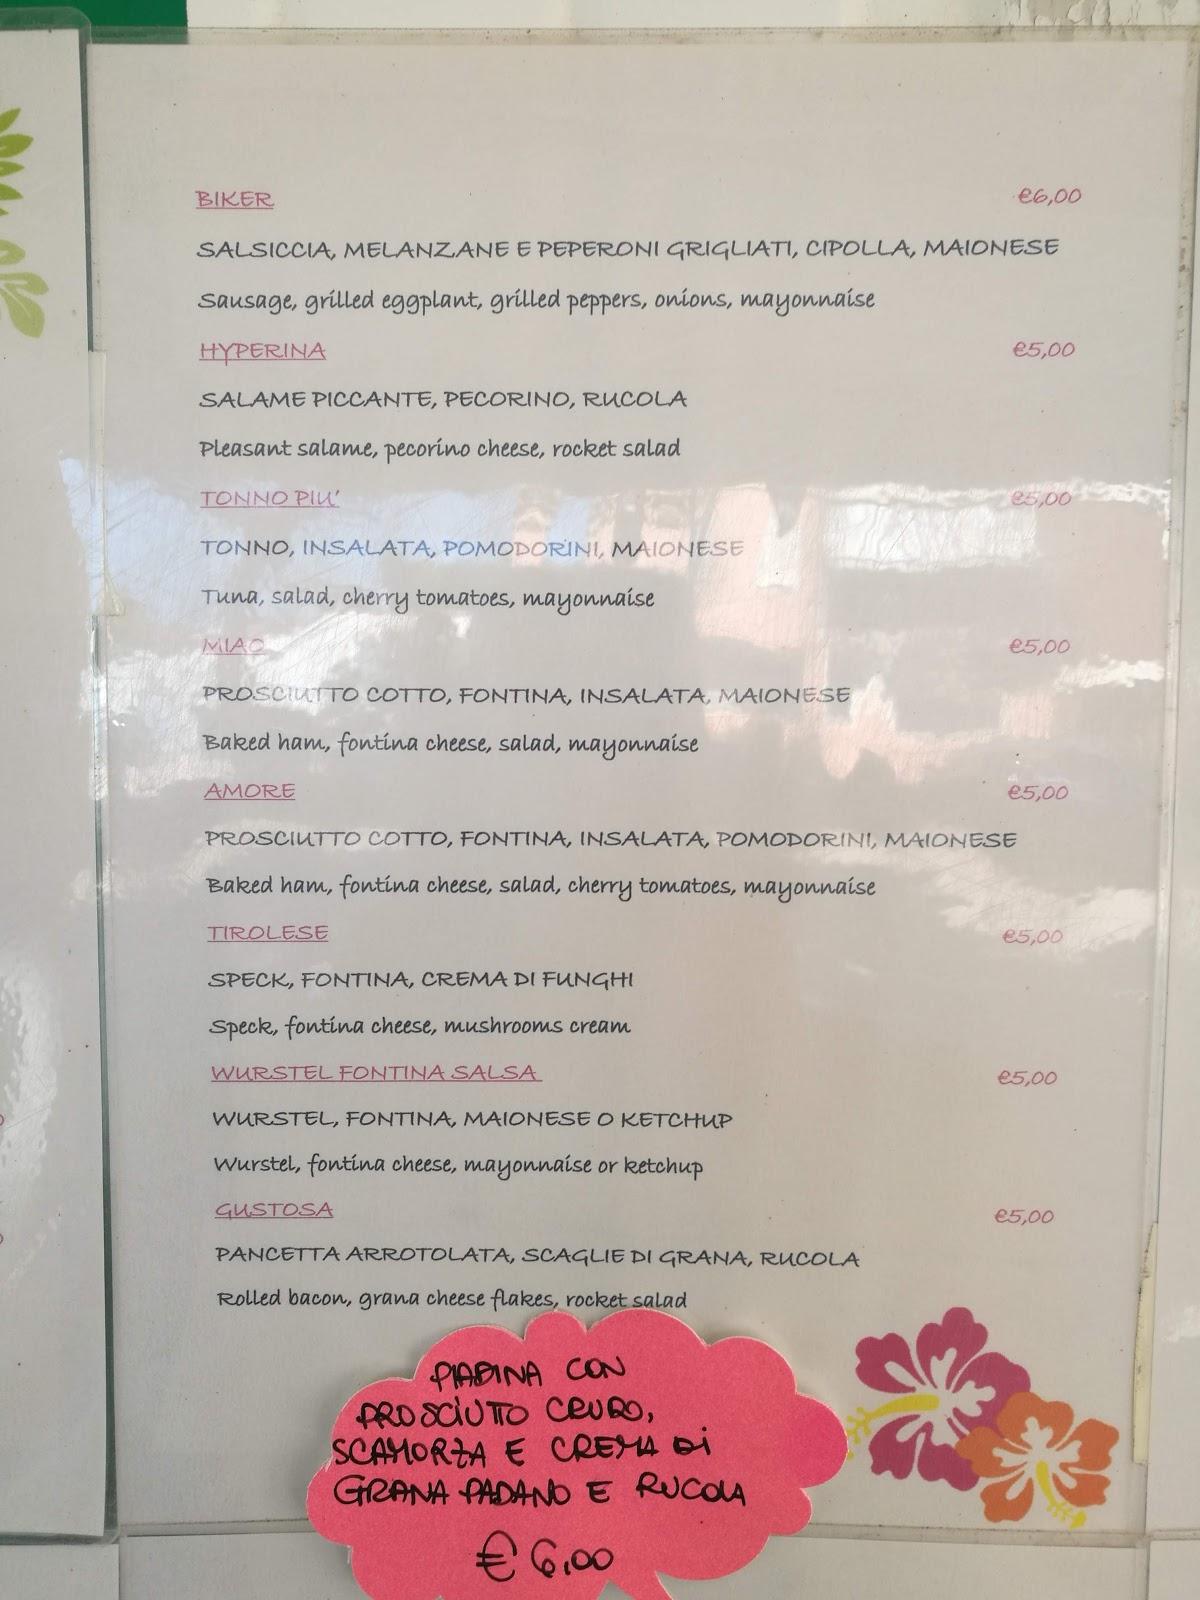 BIKER €6,00
SALSICCIA, MELANZANE E PEPERONI GRIGLIATI, CIPOLLA, MAIONESE
Sausage, grilled eggplant, grilled peppers, onions, mayonnaise
HYPERINA €5,00
SALAME PICCANTE, PECORINO, RUCOLA
Pleasant salame, pecorino cheese, rocket salad
TONNO PIU' €5,00
TONNO, INSALATA, POMODORINI, MAIONESE
Tuna, salad, cherry tomatoes, mayonnaise
MIAO €5,00
PROSCIUTTO COTTO, FONTINA, INSALATA, MAIONESE
Baked ham, fontina cheese, salad, mayonnaise
AMORE €5,00
PROSCIUTTO COTTO, FONTINA, INSALATA, POMODORINI, MAIONESE
Baked ham, fontina cheese, salad, cherry tomatoes, mayonnaise
TIROLESE €5,00
SPECK, FONTINA, CREMA DI FUNGHI
Speck, fontina cheese, mushrooms cream
WURSTEL FONTINA SALSA €5,00
WURSTEL, FONTINA, MAIONESE O KETCHUP
Wurstel, fontina cheese, mayonnaise or ketchup
GUSTOSA €5,00
PANCETTA ARROTOLATA, SCAGLIE DI GRANA, RUCOLA
Rolled bacon, grana cheese flakes, rocket salad
PIADINA CON
PROSCIUTTO CRUDO,
SCAMORZA E CREMA Di
GRANA PADANO E RUCOLA
€ 6,00